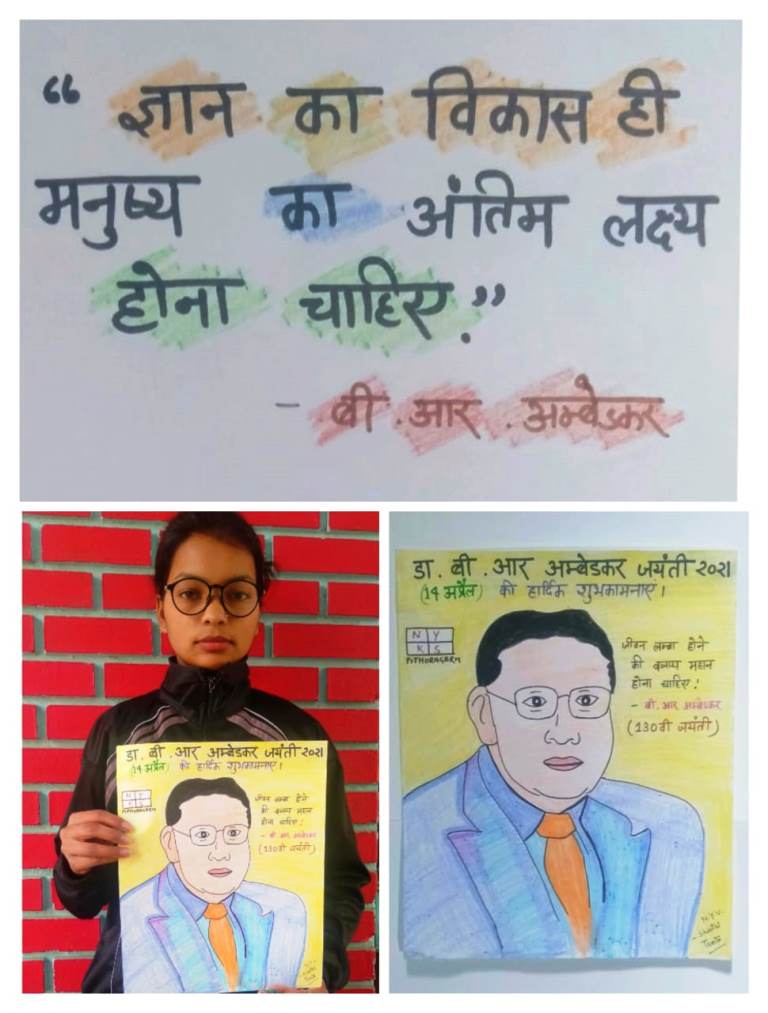 “ ज्ञान का विकास ही
मनुष्य का अंतिम लक्ष्य
होना चाहिए.”
- बी.आर.अम्बेडकर
डा. बी.आर अम्बेडकर जयंती २०२१
(14 अप्रैल) की हार्दिक शुभकामनाएं।
NY
KS
PITHORAGARH
जीवन लम्बा होने
की बजाय महान
होना चाहिए!
- बी.आर अम्बेडकर
(130वी जयंती)
डा. बी.आर अम्बेडकर जयंती २०२१
(14 अप्रैल) की हार्दिक शुभकामनाएं।
N Y
K S
PITHORAGARH
जीवन लम्बा होने
की बजाय महान
होना चाहिए!
- बी.आर अम्बेडकर
(130वी जयंती)
N.Y.V.